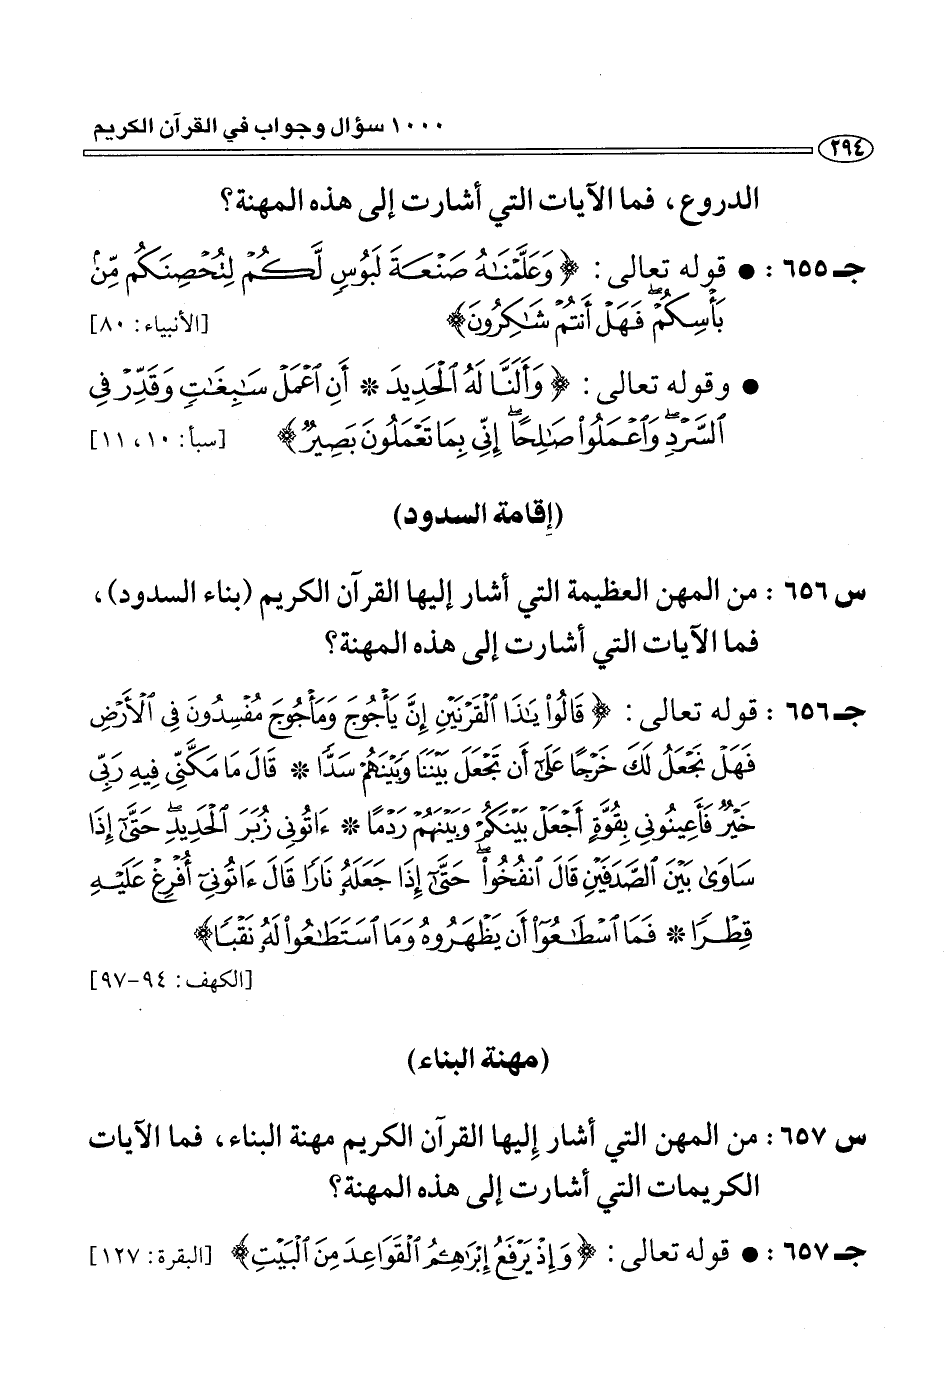 ١٠٠٠ سؤال وجواب في القرآن الكريم
٢٩٤
الدروع، فما الآيات التي أشارت إلى هذه المهنة؟
جـ ٦٥٥ : • قوله تعالى : ﴿ وَعَلَّمْنَٰهُ صَنْعَةَ لَبُوسٍ لَّكُمْ لِتُحْصِنَكُم مِّنۢ
بَأْسِكُمْ ۖ فَهَلْ أَنتُمْ شَٰكِرُونَ﴾ [الأنبياء: ٨٠]
• وقوله تعالى : ﴿ وَأَلَنَّا لَهُ ٱلْحَدِيدَ * أَنِ ٱعْمَلْ سَٰبِغَٰتٍ وَقَدِّرْ فِى
ٱلسَّرْدِ ۖ وَٱعْمَلُوا۟ صَٰلِحًا ۖ إِنِّى بِمَا تَعْمَلُونَ بَصِيرٌ﴾ [سبأ: ١٠، ١١]
(إقامة السدود)
س ٦٥٦ : من المهن العظيمة التي أشار إليها القرآن الكريم (بناء السدود)،
فما الآيات التي أشارت إلى هذه المهنة؟
جـ ٦٥٦ : قوله تعالى : ﴿ قَالُوا۟ يَٰذَا ٱلْقَرْنَيْنِ إِنَّ يَأْجُوجَ وَمَأْجُوجَ مُفْسِدُونَ فِى ٱلْأَرْضِ
فَهَلْ نَجْعَلُ لَكَ خَرْجًا عَلَىٰٓ أَن تَجْعَلَ بَيْنَنَا وَبَيْنَهُمْ سَدًّا * قَالَ مَا مَكَّنِّى فِيهِ رَبِّى
خَيْرٌ فَأَعِينُونِى بِقُوَّةٍ أَجْعَلْ بَيْنَكُمْ وَبَيْنَهُمْ رَدْمًا * ءَاتُونِى زُبَرَ ٱلْحَدِيدِ ۖ حَتَّىٰٓ إِذَا
سَاوَىٰ بَيْنَ ٱلصَّدَفَيْنِ قَالَ ٱنفُخُوا۟ ۖ حَتَّىٰٓ إِذَا جَعَلَهُۥ نَارًا قَالَ ءَاتُونِىٓ أُفْرِغْ عَلَيْهِ
قِطْرًا * فَمَا ٱسْطَٰعُوٓا۟ أَن يَظْهَرُوهُ وَمَا ٱسْتَطَٰعُوا۟ لَهُۥ نَقْبًا﴾
[الكهف: ٩٤-٩٧]
(مهنة البناء)
س ٦٥٧ : من المهن التي أشار إليها القرآن الكريم مهنة البناء، فما الآيات
الكريمات التي أشارت إلى هذه المهنة؟
جـ ٦٥٧ : • قوله تعالى : ﴿ وَإِذْ يَرْفَعُ إِبْرَٰهِـۧمُ ٱلْقَوَاعِدَ مِنَ ٱلْبَيْتِ﴾ [البقرة: ١٢٧]